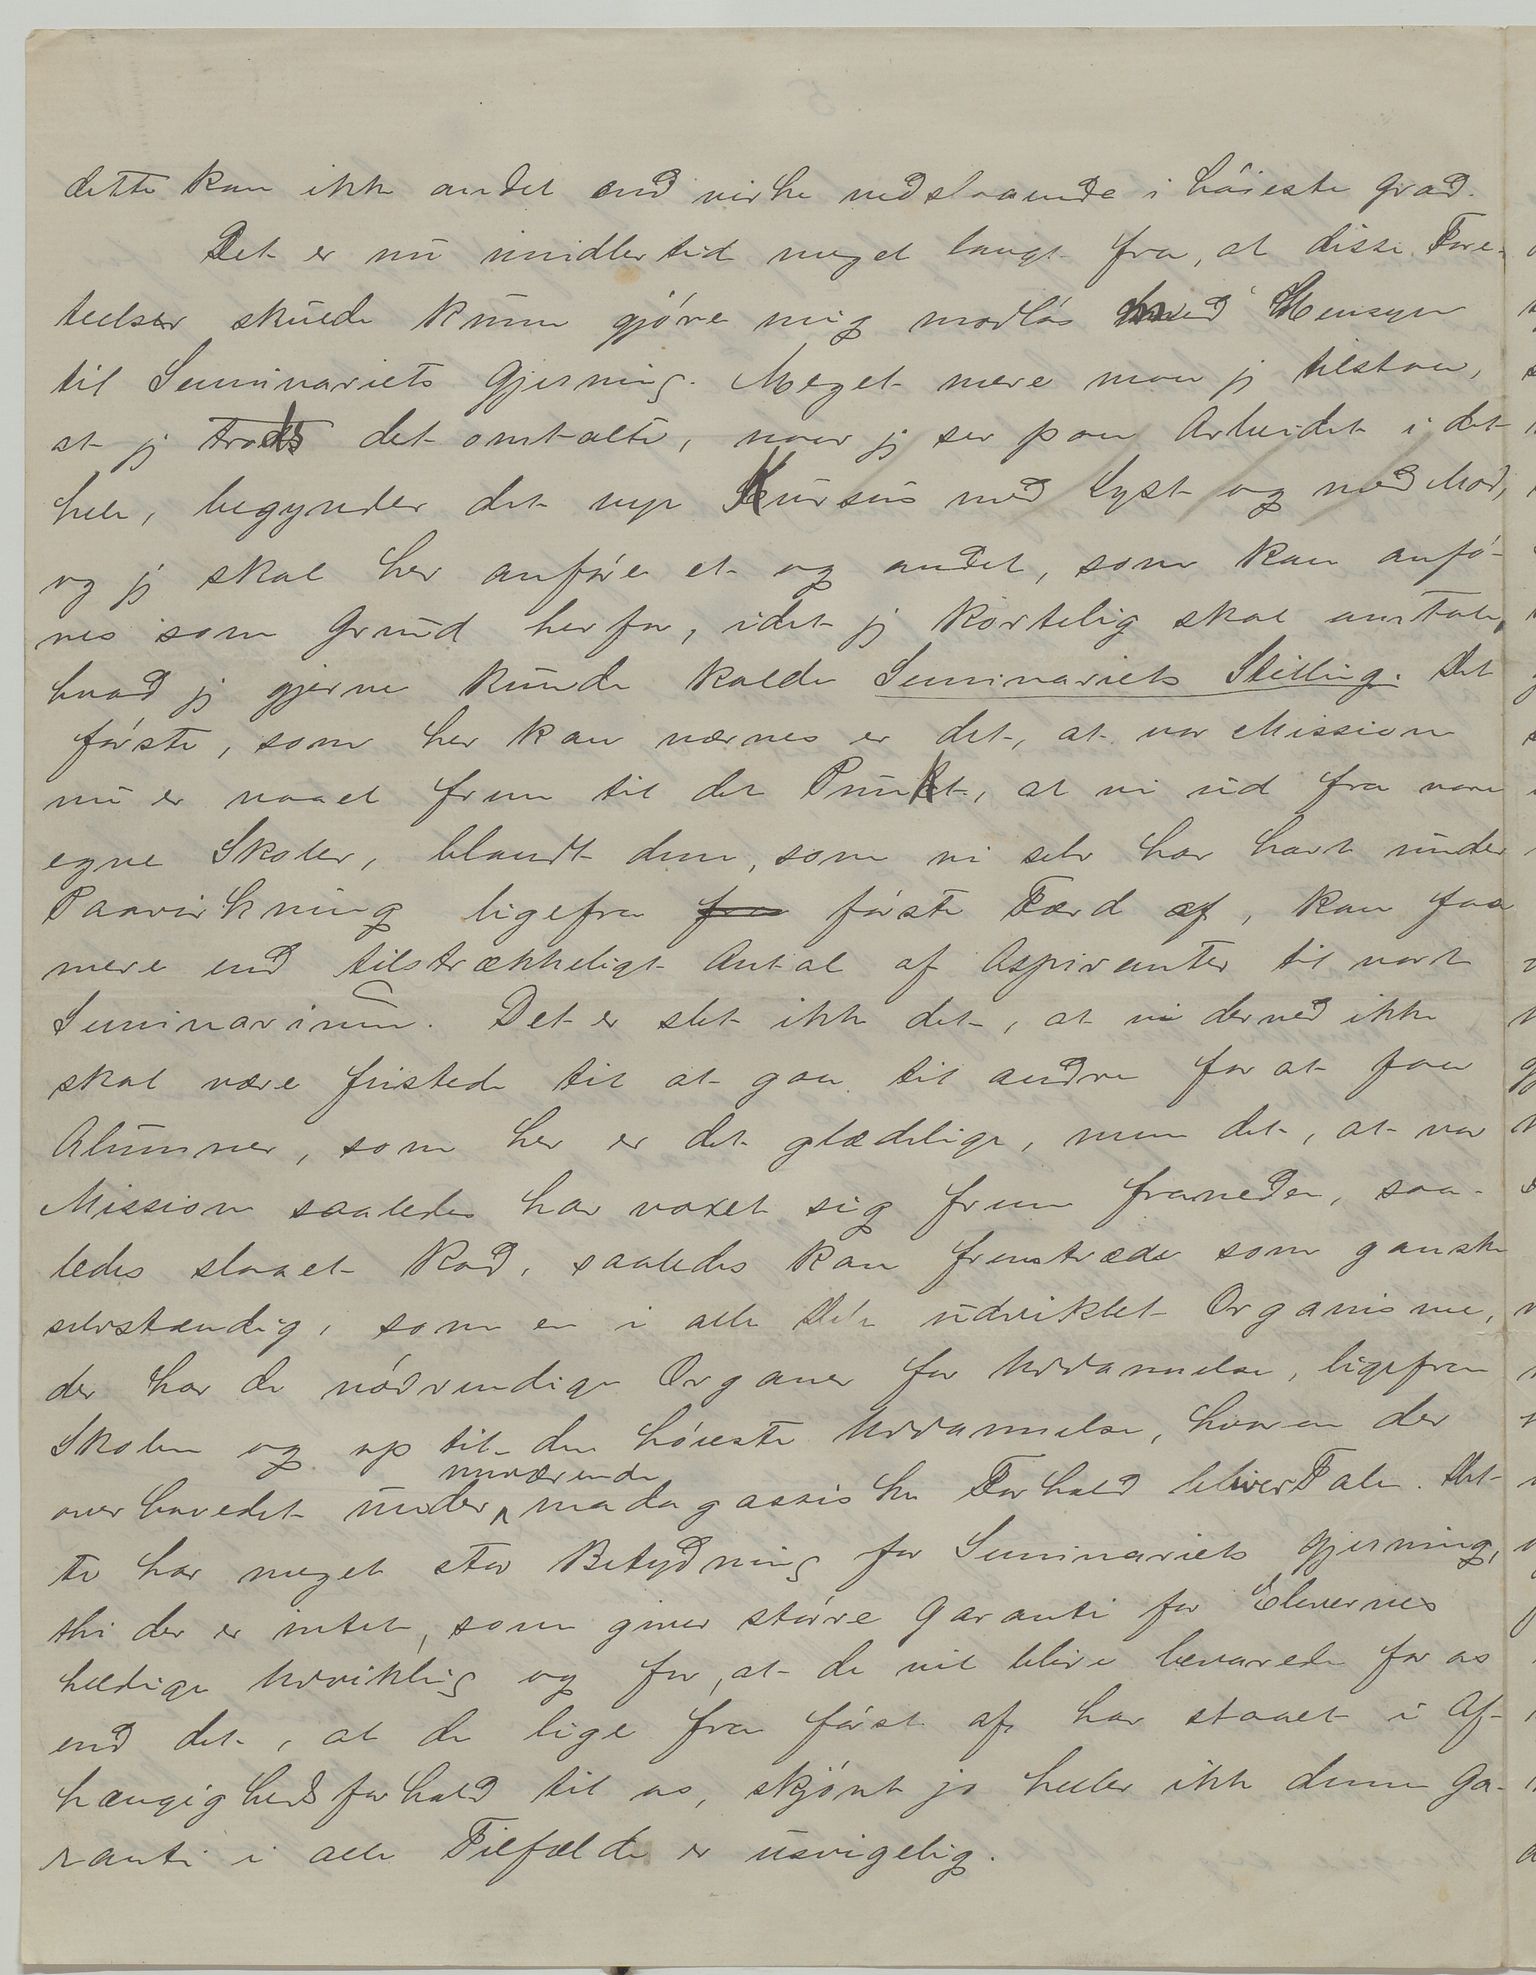 dette kan ikke andet end virke nedslaaende i höieste Grad.
Det er nu imidlertid meget langt fra, at disse Fore-
teelser skulde kunne gjöre mig modlös med Hensyn
til Seminariets Gjerning. Meget mere maa jeg tilstaa,
at jeg trods det omtalte, naar jeg ser paa Arbeidet i det
hele, begynder det nye Kursus med Lyst og med Mod,
og jeg skal her anföre et og andet, som kan anfö-
res som Grund herfor, idet jeg kortelig skal omtale,
hvad jeg gjerne kunde kalde Seminariets Stilling. Det
förste, som her kan nævnes er det, at vor Mission
nu er naaet frem til det Punkt, at vi ud fra vore
egne Skoler, blandt dem, som vi selv har havt under
Paavirkning ligefra fra förste Færd af, kan faa
mere end tilstrækkeligt Antal af Aspiranter til vort
Seminarium. Det er slet ikke det, at vi derved ikke
skal være fristede til at gaa til andre for at faa
Alumner, som her er det glædelige, men det, at vor
Mission saaledes har voxet sig frem franeden, saa-
ledes slaaet Rod, saaledes kan fremtræde som ganske
selvstændig, som en i alle Dele udviklet Organisme,
der har de nödvendige Organer for Uddannelse, ligefra
Skolen og op til den höieste Uddannelse, hvorom der
nuværende
overhovedet under ^ madagassiske Forhold bliver Tale. Det-
te har meget stor Betydning for Seminariets Gjerning,
thi der er intet, som giver större Garanti for Elevernes
heldige Udvikling og for, at de vil blive bevarede for os
end det, at de lige fra först af har staaet i Af-
hængighedsforhold til os, skjönt jo heller ikke denne Ga-
ranti i alle Tilfælde er usvigelig.